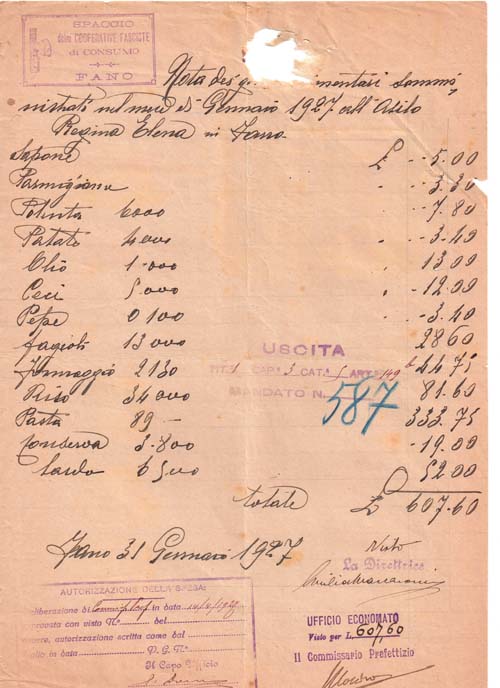 SPACCIO
delle COOPERATIVE FASCISTE
di CONSUMO
FANO
Nota dei g mentari sommi
nistrati nel mese di Gennaio 1927 all'Asilo
Regina Elena in Fano
Sapone £ 5.00
Parmigiano 3.30
Polenta 6000 7.80
Patate 4000 3.40
Olio 1.000 13 00
Ceci 5000 12.00
Pepe 0100 3.40
fagioli 13000 28 60
formaggio 2130 44 75
Riso 34000 81.60
Pasta 89 333.75
Conserva 3.800 19.00
Lardo 52.00
USCITA
CAP. 3 CAT. 1 ART. 149
MANDATO N. 587
totale £ 607.60
Fano 31 Gennaio 1927
Visto
La Direttrice
AUTORIZZAZIONE DELLA SPESA:
in data
con visto N. del
autorizzazione scritta come dal
in data P. G. N.
Il Capo Ufficio
UFFICIO ECONOMATO
Visto per L. 607,60
Il Commissario Prefettizio